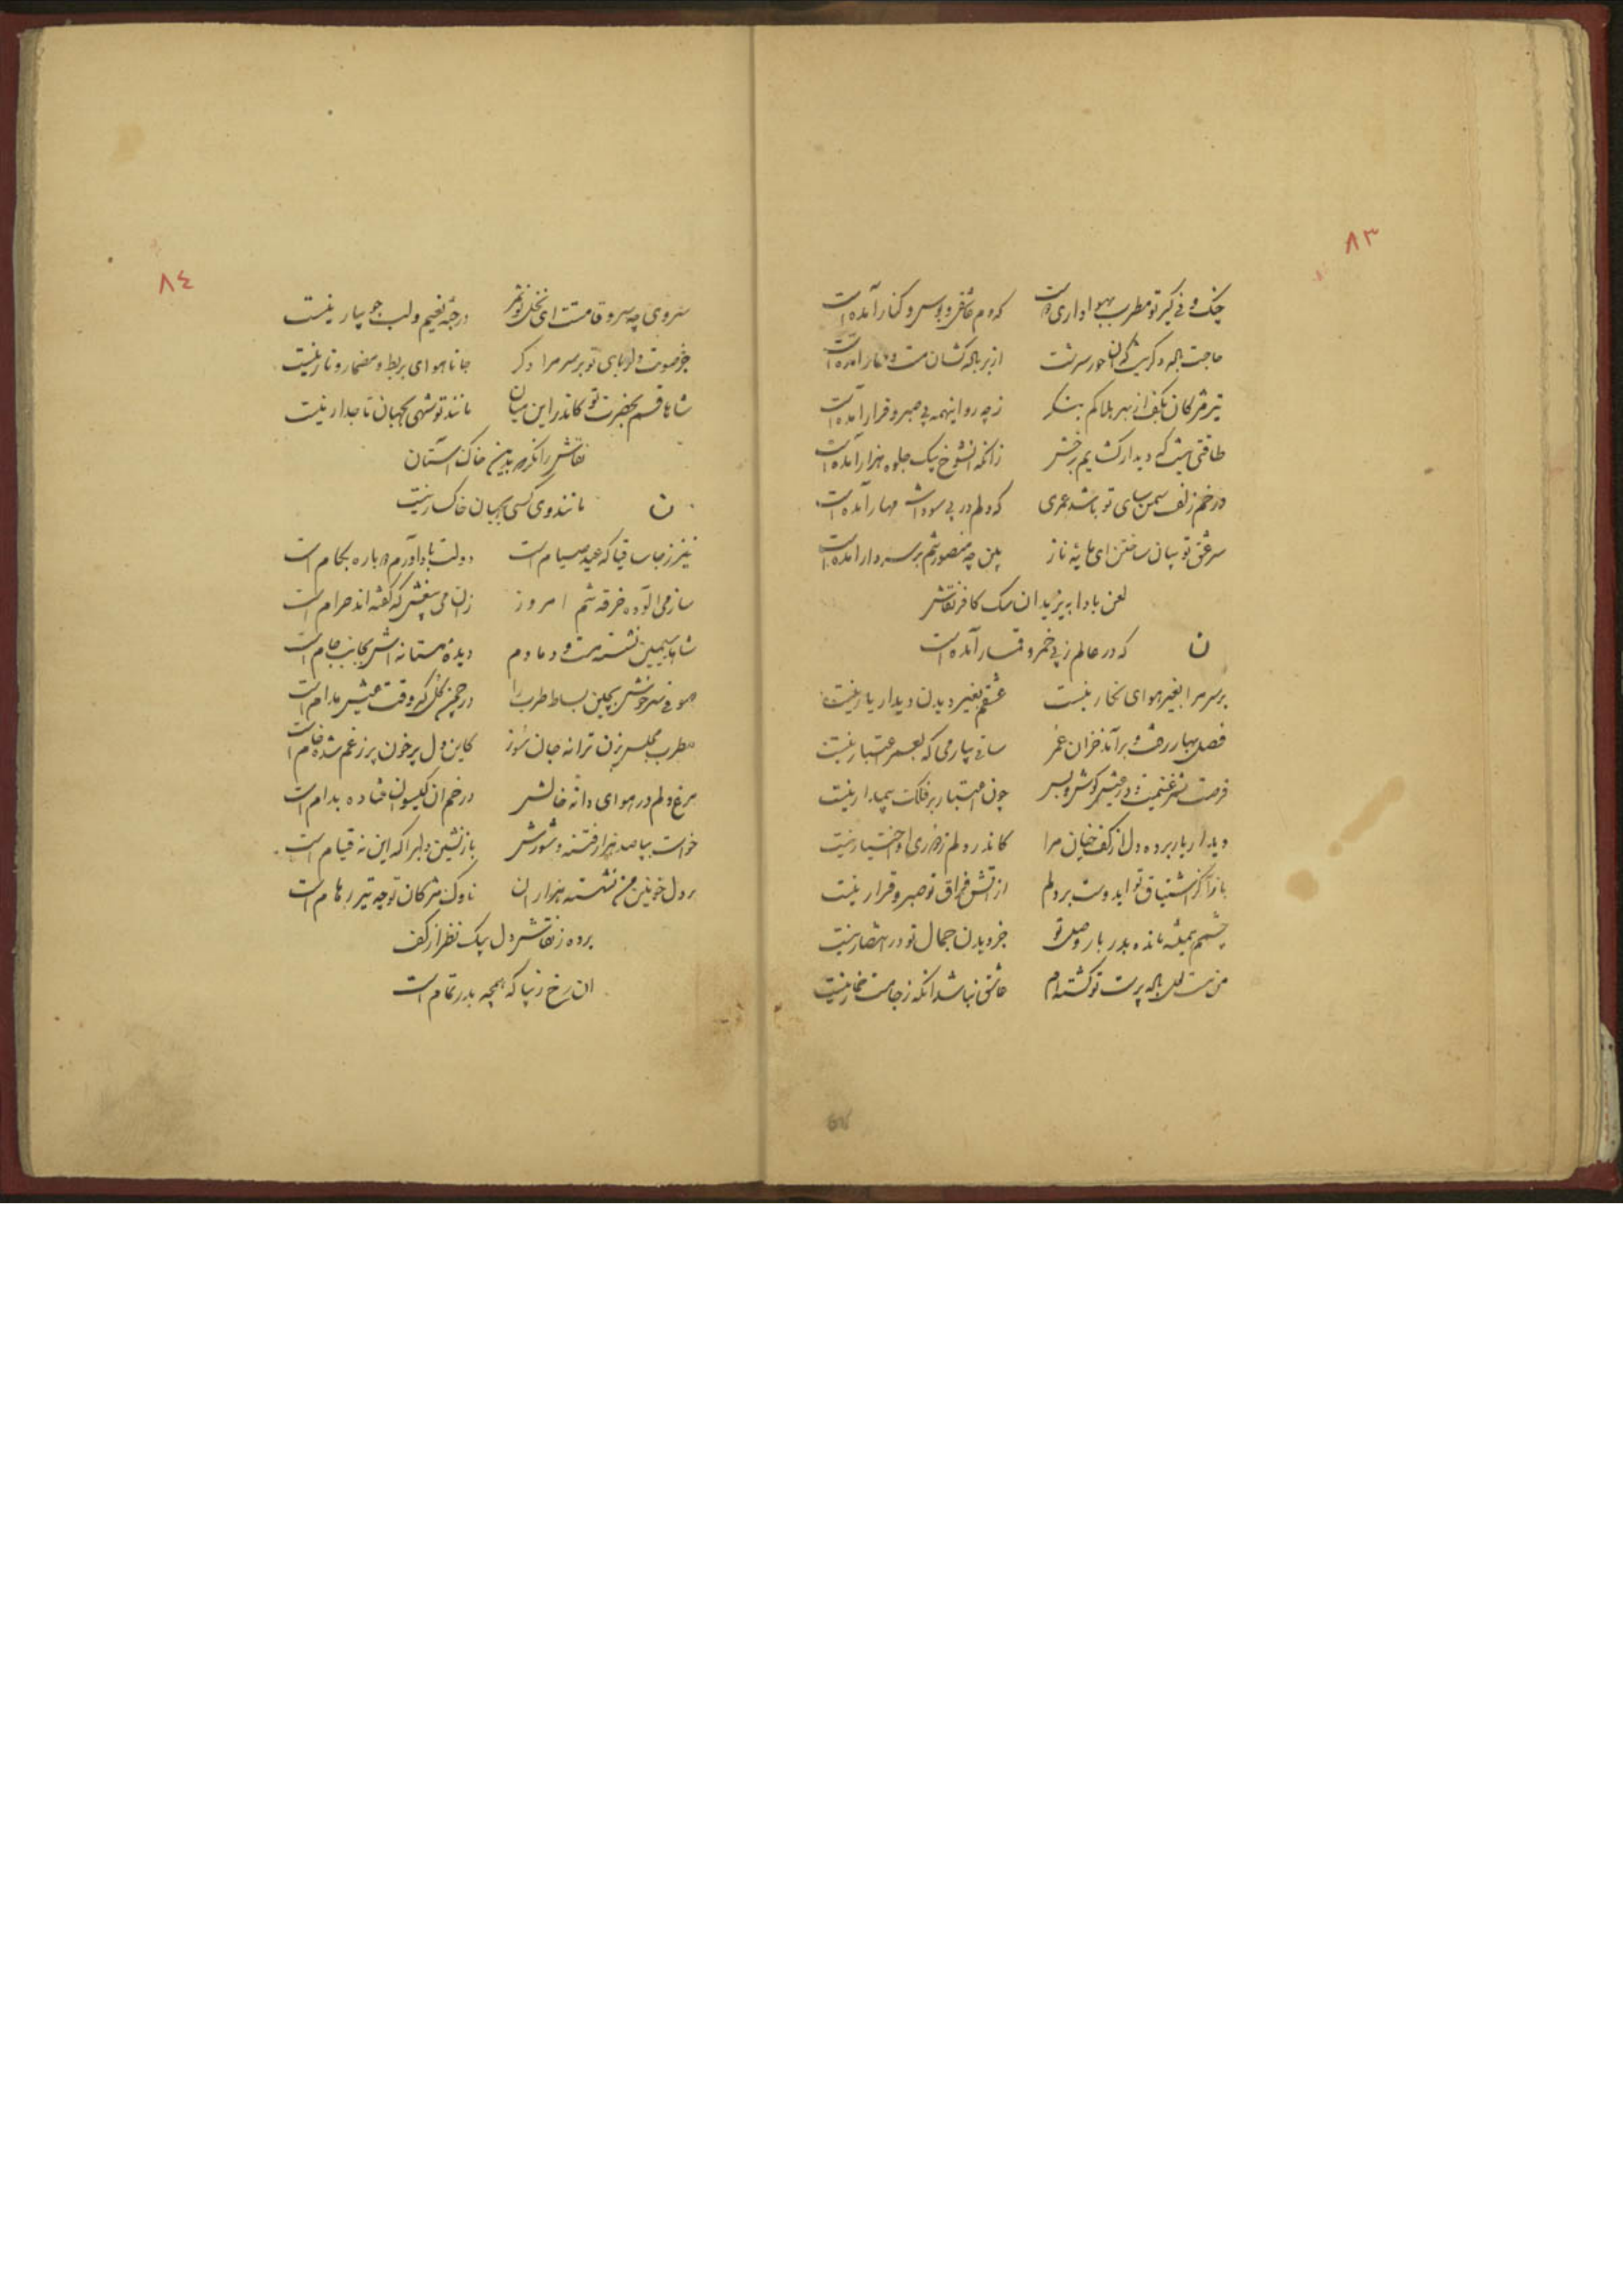 ٨٣
چنگ و نی گیر تو مطرب بهواداری که دم عاشق و بوس و کنار آمده است
حاجت باله دگر نیست حور سرشت از بر باله کشان مست و آمده است
تیر مژکان بکف از بهر هلاکم بنکر ز چه رو اینهمه بی صبر و قرار آمده است
طاقتی نیست که دیدار کشایم برخش زانکه انشوخ بیک جلوه هزار آمده است
در خم زلف سمن سای تو باشد عمری که دلم در پی سودات مهار آمده است
سر عشق تو بیان ساختن ای مایه ناز بین چه منصور شم بر سر دار امده است
لعن بادا به یزید ان سک کافر نقاش
ن که در عالم ز پی خمر و قمار آمده است
بر سر مرا بغیر هوای نکار نیست عشقم بغیر دیدن دیدار یار نیست
فصل بهار رفت و برآمد خزان عمر ساقی بیار می که بعمر اعتبار نیست
فرصت شمر غنیمت و در عیش کوش و بس چون اعتبار بر فلک بیمدار نیست
دیدار یار برده دل از کف چنان مرا کاندر دلم ز اختیار نیست
باز آ کز اشتیاق تو ایدوست بر دلم از اتش فراق تو صبر و قرار نیست
چشمم همیشه مانده بدر بار وصل تو جز دیدن جمال تو در انتظار نیست
من مست لعل باله پرست تو کشته ام عاشق نباشد انکه ز جامت خمار نیست
٨٤
سروی چه سرو قامتت ای نخل نو ثمر در جنه نعیم و لب جویبار نیست
جز صوت دلربای تو بر سر مرا دکر جانا هوای بربط و مضمار و تار نیست
شاها قسم بحضرت تو کاندر این میان مانند تو شهی بجهان تاجدار نیست
نقاش را نکر بدین خاک آستان
ن مانند وی کسی بجهان خاکسار نیست
خیز ز جا ساقیا که عید صیام است دولت باداورم بکام است
ساز می الوده خرقه شم امروز زان می بیغش که کفته اند حرام است
شاهد سیمین نشسته مست و دمادم دیده مستانه اش بجانب جام است
صوفی سرخوش بچین بساط طرب را در چمن کل که وقت عیش مدام است
مطرب مجلس بزن ترانه جان سوز کاین دل پر خون پر ز غم شده خام است
مرغ دلم در هوای دانه خالش در خم ان کیسوان فتاده بدام است
خواست بپا صد هزار فتنه و شورش باز نشین دلبرا که این نه قیام است
بر دل خونین من نشسته هزاران ناوک مژکان تو چه تیر رها م است
برده ز نقاش دل بیک نظر از کف
ان رخ زیبا که همچه بدر تمام است